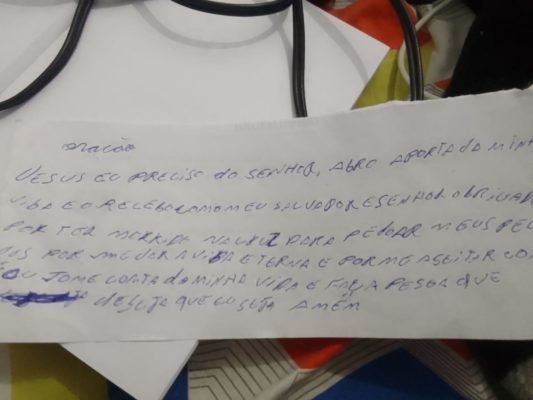 oração
JESUS EU PRECISO do SENHOR, ABRO APORTA dA MINHA
VIDA E O RECEBO COMO MEU SALVADOR E SENHOR OBRIGADO
POR TER MORRIDO NA CRUZ PARA PEdOAR MEUS PE
POR ME DAR A VIDA ETERNA E POR ME ASEITAR CO
TOME CONTA dA MINHA VIDA E FAÇA PESOA QUE
dESEJA QUE EU SEJA AMÉM